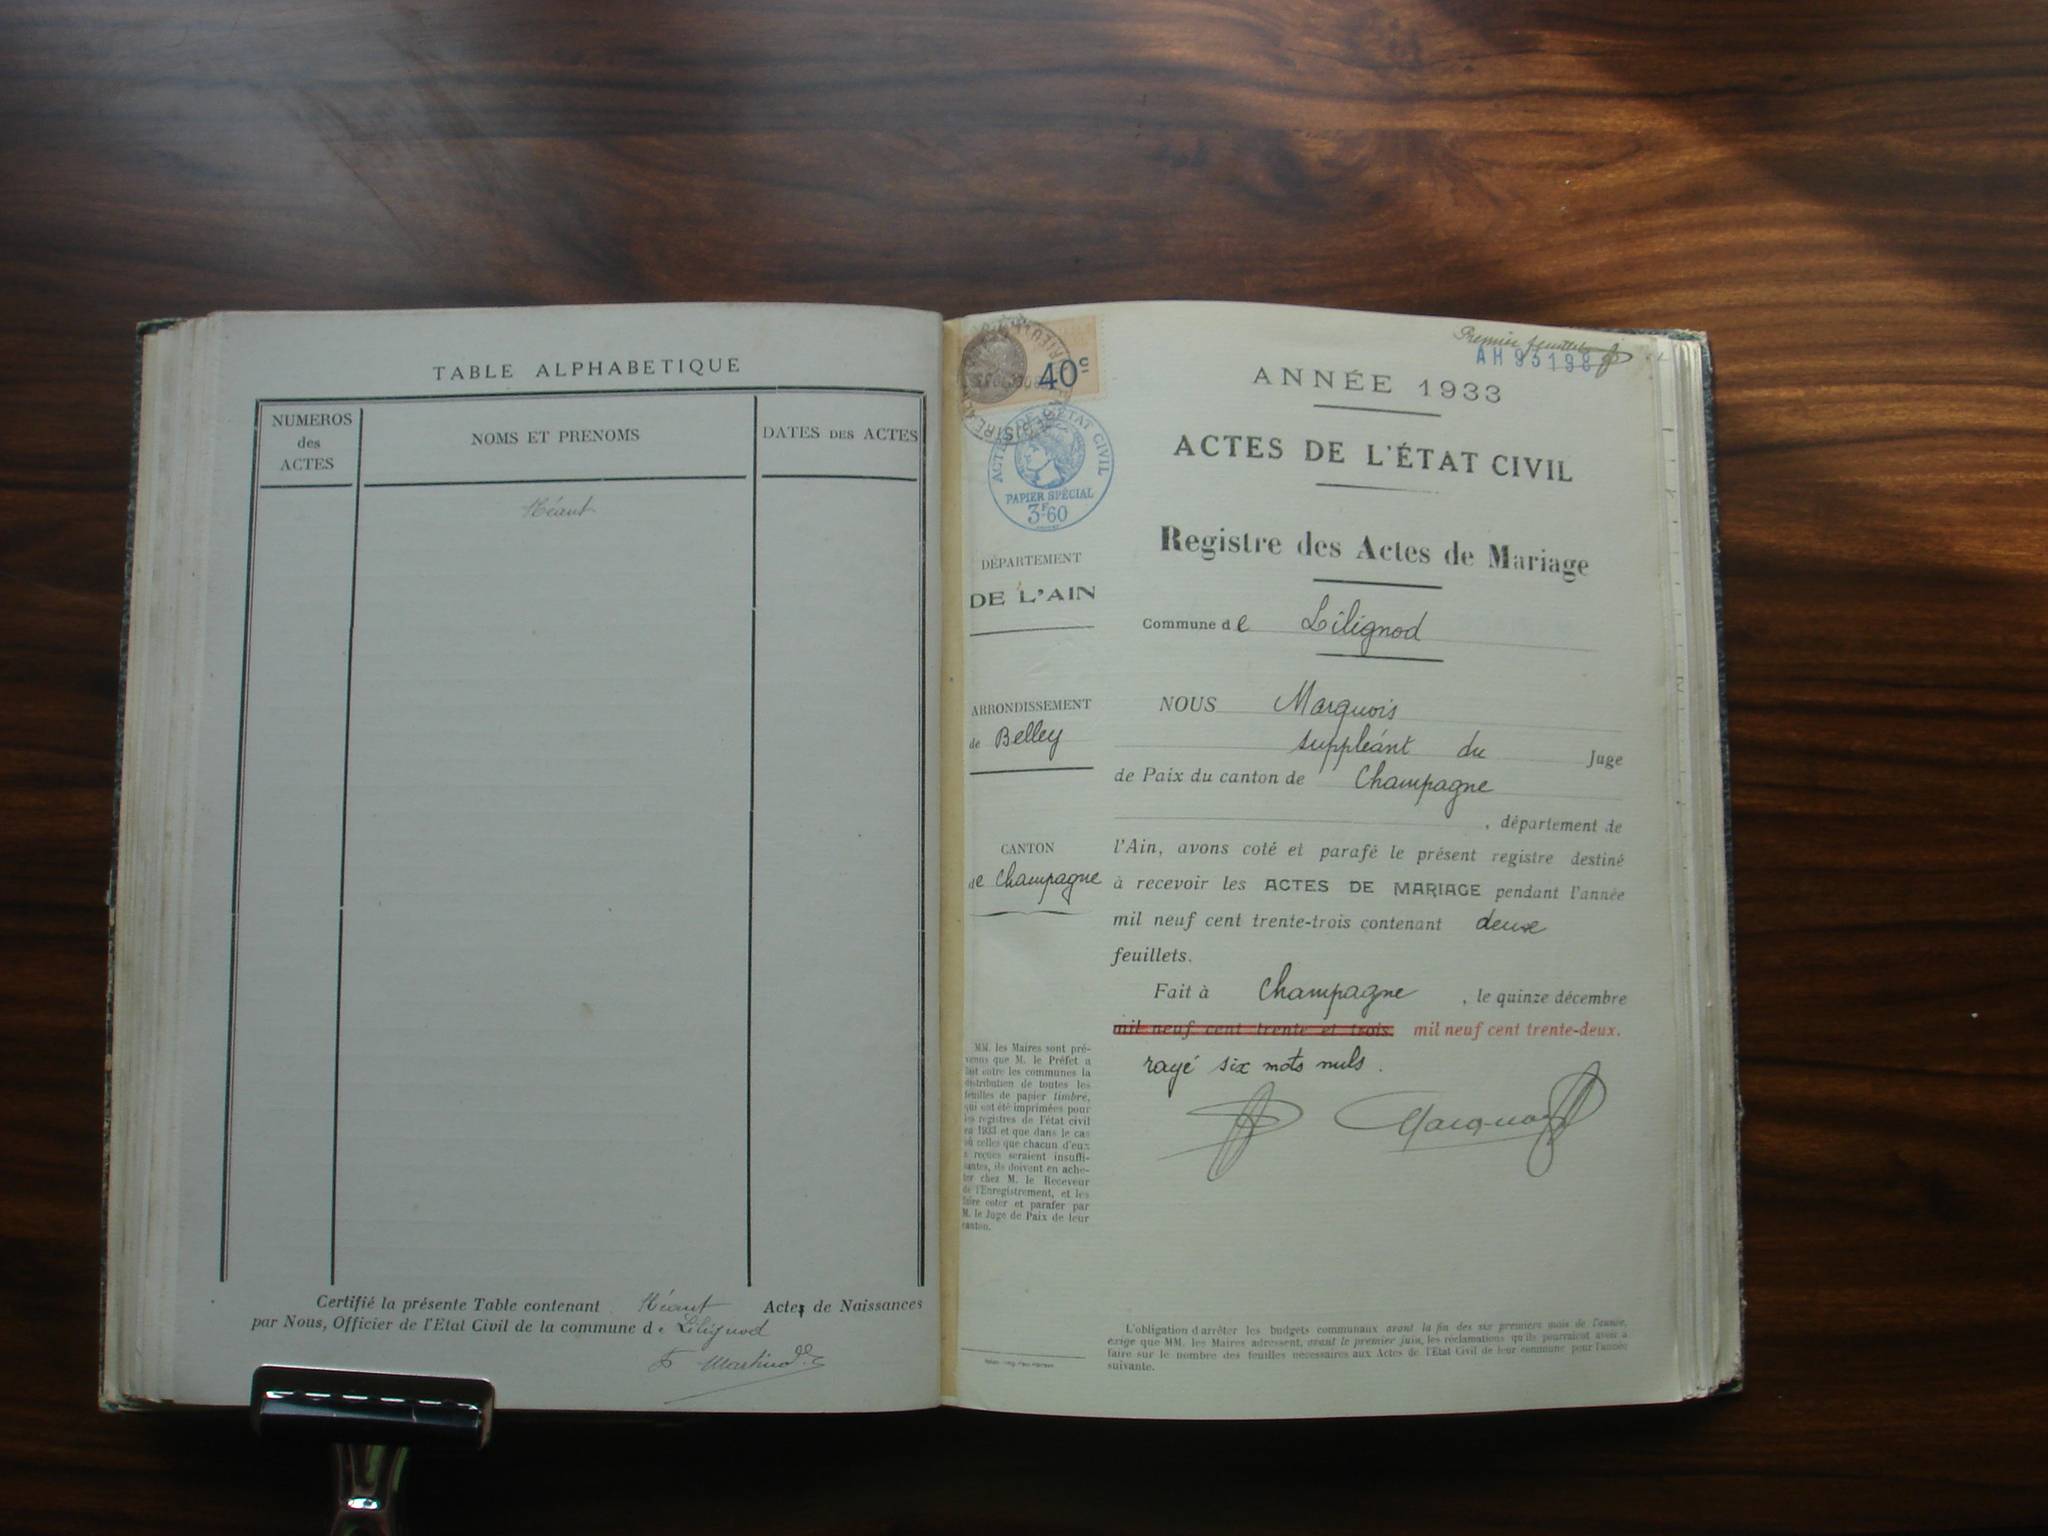 TABLE ALPHABETIQUE
NUMEROS
des
ACTES
NOMS ET PRENOMS
DATES DES ACTES
Néant
Certifié la présente Table contenant Néant Actes de Naissances
par Nous, Officier de l'Etat Civil de la commune de Lilignod
Premier feuillet
AH 93198
40c
ACTES DE L'ÉTAT CIVIL
PAPIER SPÉCIAL
3F60
DÉPARTEMENT
DE L'AIN
ARRONDISSEMENT
de Belley
CANTON
de Champagne
MM. les Maires sont pré-
venus que M. le Préfet a
fait entre les communes la
distribution de toutes les
feuilles de papier timbre,
qui ont été imprimées pour
les registres de l'état civil
en 1933 et que dans le cas
où celles que chacun d'eux
a reçues seraient insuffi-
santes, ils doivent en ache-
ter chez M. le Receveur
de l'Enregistrement, et les
faire coter et parafer par
M. le Juge de Paix de leur
canton.
ANNÉE 1933
ACTES DE L'ÉTAT CIVIL
Registre des Actes de Mariage
Commune de Lilignod
NOUS Marquois
suppléant du Juge
de Paix du canton de Champagne
, département de
l'Ain, avons coté et parafé le présent registre destiné
à recevoir les ACTES DE MARIAGE pendant l'année
mil neuf cent trente-trois contenant deux
feuillets.
Fait à Champagne, le quinze décembre
mil neuf cent trente et trois mil neuf cent trente-deux.
rayé six mots nuls.
Marquois
L'obligation d'arrêter les budgets communaux avant la fin des six premiers mois de l'année,
exige que MM. les Maires adressent, avant le premier juin, les réclamations qu'ils pourraient avoir à
faire sur le nombre des feuilles nécessaires aux Actes de l'Etat Civil de leur commune pour l'année
suivante.